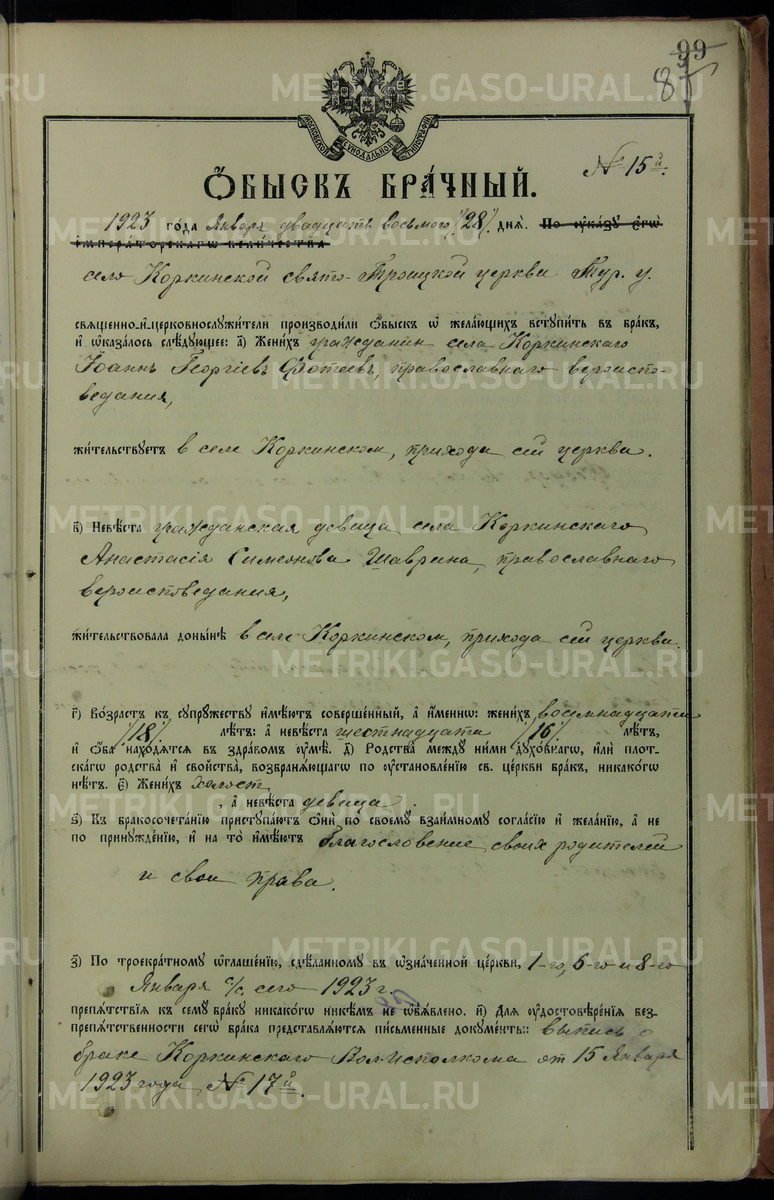 99
85
МОСКОВСКОЙ СѴНОДАЛЬНОЙ ТИПОГРАФІИ
№ 15й.
Ѻ҆́БЫСКЪ БРА́ЧНЫЙ.
1923 го́да Января двадцать восьмого /28/ днѧ̀. По ᲂу҆ка́зу є҆гѡ̀
і҆мпера́торскагѡ вели́чества
село Коркинской свято-Троицкой церкви Тур. у.
свѧще́нно-и҆-церковнослꙋжи́тели производи́ли Ѻ҆́быскъ ѡ҆ жела́ющихъ встꙋпи́ть въ бра́къ,
и҆ ѡ҆каза́лось слѣ́дꙋющее: а҃) Жени́хъ гражданин села Коркинскаго
Іоаннъ Георгіевъ Фотеевъ, православнаго вероиспо-
ведания,
жи́тельствꙋетъ в селе Коркинском, прихода сей церкви.
в҃) Невѣ́ста гражданская девица села Коркинскаго
Анастасія Симеонова Шаврина, православнаго
вероисповедания,
жи́тельствовала доны́нѣ в селе Коркинском, прихода сей церкви.
г҃) Во́зрастъ къ сꙋпрꙋ́жествꙋ и҆мѣ́ютъ соверше́нный, а҆ и҆́менно: жени́хъ восемнадцати
/18/ лѣ́тъ: а҆ невѣ́ста шестнадцати /16/ лѣ́тъ,
и҆ ѻ҆́ба нахо́дѧтсѧ въ здра́вомъ ᲂу҆мѣ̀. д҃) Родства̀ междꙋ ни́ми дꙋхо́внагѡ, и҆лѝ плот-
ска́гѡ родства̀ и҆ сво́йства, возбранѧ́ющагѡ по ᲂу҆становле́нїю св. це́ркви бра́къ, никако́гѡ
нѣ́тъ. є҃) Жени́хъ холост
, а҆ невѣ́ста девица.
ѕ҃) Въ бракосочета́нїю пристꙋпа́ютъ ѻ҆нѝ по своемꙋ̀ взаи́мномꙋ согла́сїю и҆ жела́нїю, а҆ не
по принꙋжде́нїю, и҆ на то̀ и҆мѣ́ютъ благословение своих родителей
и свои права.
з҃) По троекра́тномꙋ ѡ҆глаше́нїю, сдѣ́ланномꙋ въ ѡ҆зна́ченной це́ркви, 1-го, 6-го и 8-го
Января с/с. сего 1923 г.
препѧ́тствїѧ къ семꙋ̀ бра́кꙋ никако́гѡ никѣ́мъ не ѡ҆б̾ѧ́влено. и҃) Длѧ ᲂу҆достовѣре́нїѧ без-
препѧ́тственности сегѡ̀ бра́ка представлѧ́ютсѧ пи́сьменные докꙋме́нты: выпись о
браке Коркинскаго Вол-исполкома от 15 Января
1923 года № 17й